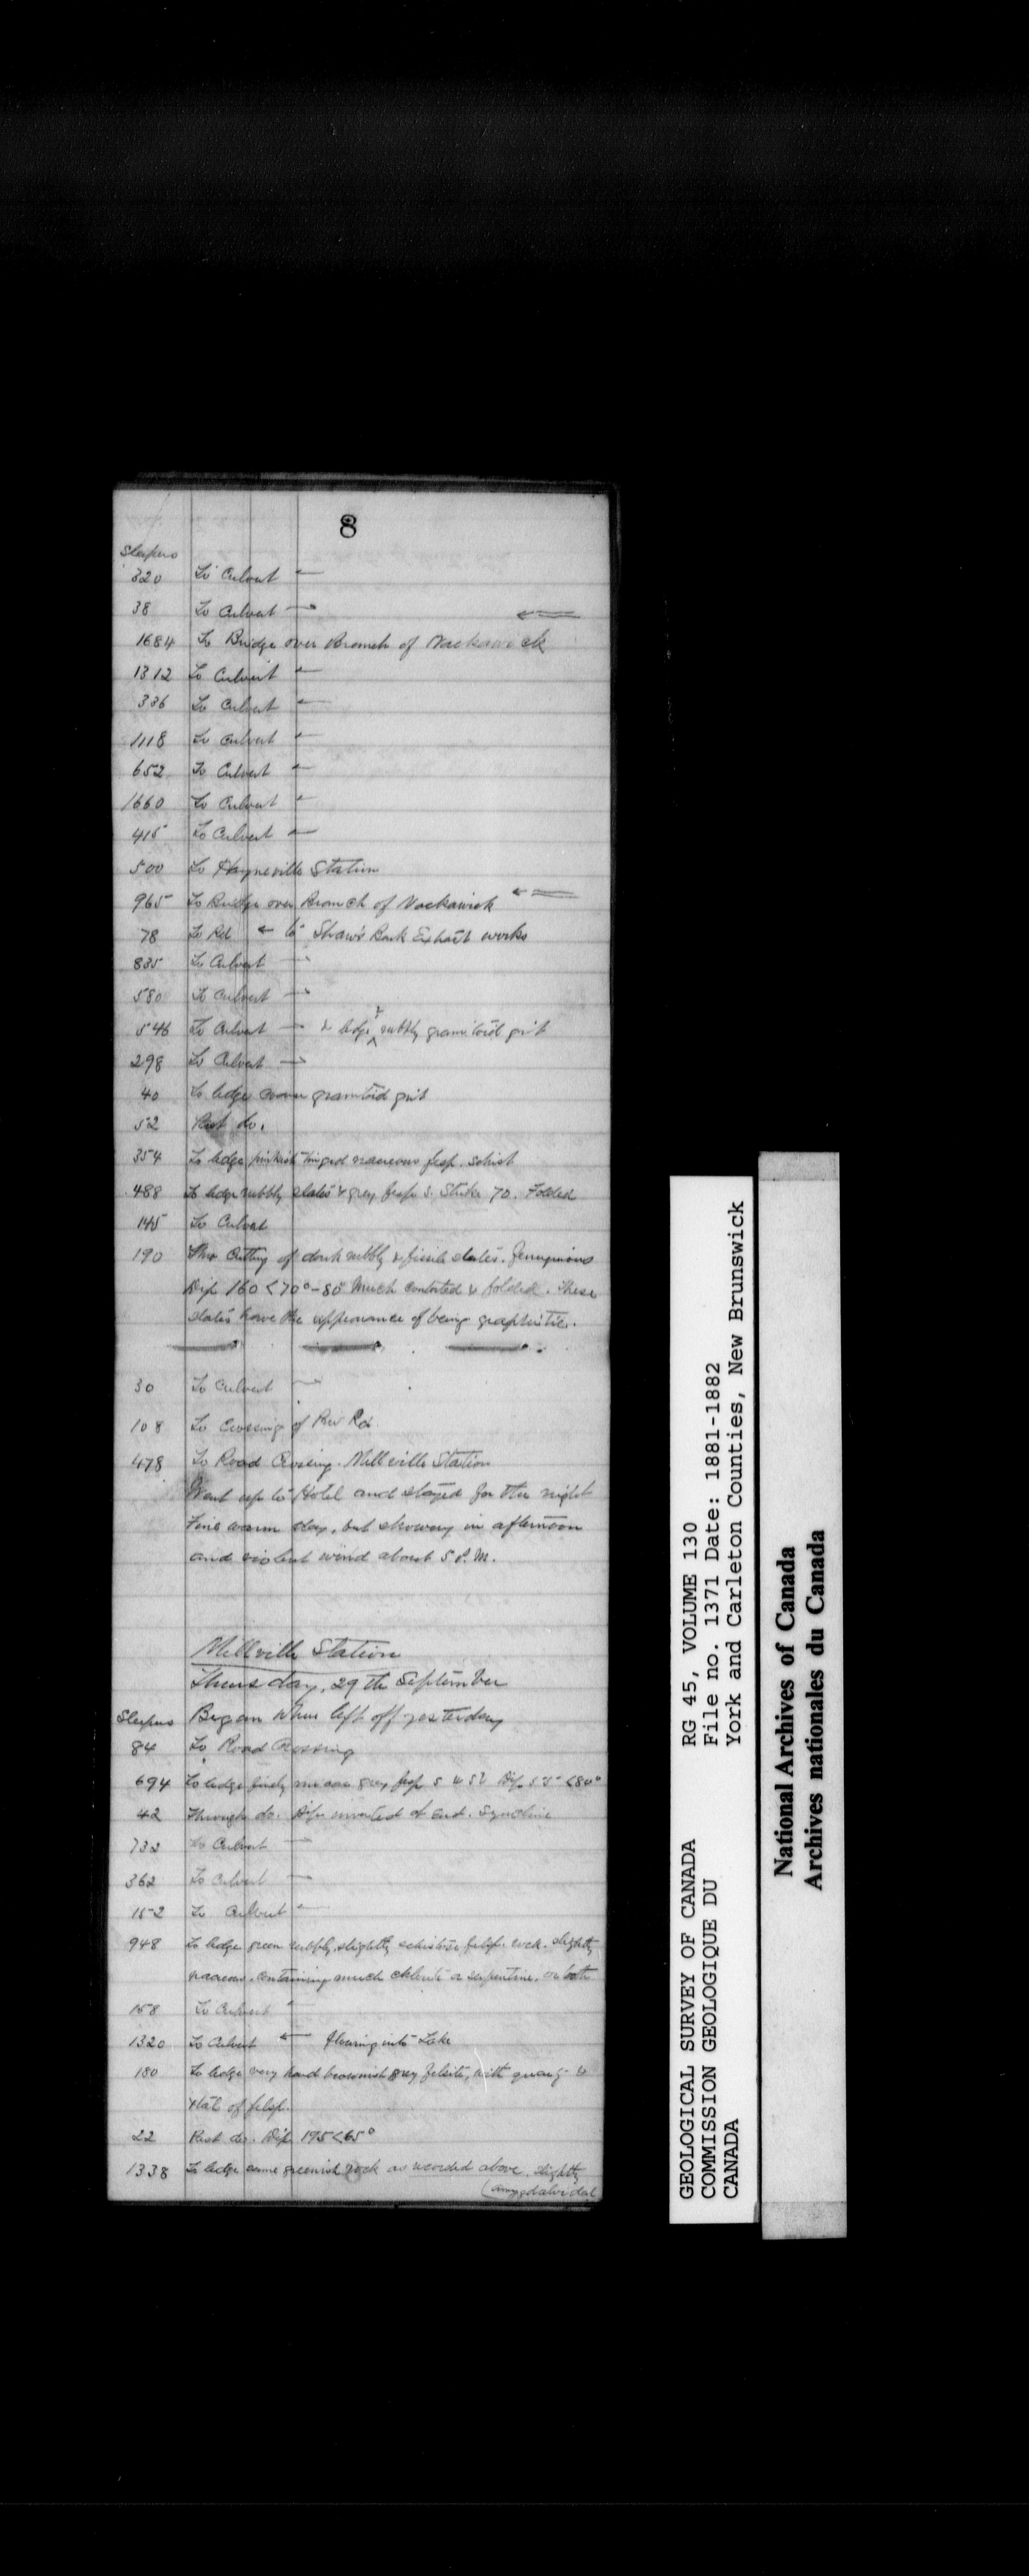 8
Sleepers
320 To Culvert ←
38 To Culvert →
1684 To Bridge over Branch of Nackawick ←
1312 To Culvert ←
336 To Culvert ←
1118 To Culvert ←
652 To Culvert ←
1660 To Culvert ←
415 To Culvert ←
500 To Hayneville Station
965 To Bridge over Branch of Nackawick ←
78 To Rd ← to Shaw's Bark Extract works
835 To Culvert →
580 To Culvert →
546 To Culvert → & ledge rubbly granitoid grit
298 To Culvert →
40 To ledge granitoid grit
52 Past do.
354 To ledge pinkish tinged nacreous felsp. schist
488 To ledge rubbly slates & grey felsp. s. Strike 70. Folded
145 To Culvert
190 Thro Cutting of dark rubbly & fissile slates. Ferruginous
Dip 160 < 70° - 80° Much contorted & folded. These
slates have the appearance of being graphitic.
30 To Culvert →
108 To Crossing of Rd
478 To Road Crossing. Millville Station
Went up to Hotel and stayed for the night
Fine warm day, but showery in afternoon
and violent wind about 5 P.M.
Millville Station
Thursday, 29th September
Sleepers Began where left off yesterday
84 To Road Crossing
694 To ledge finely micac grey felsp s < 80°
42 Through do. Dip inverted at end. Syncline
732 To Culvert →
362 To Culvert →
152 To Culvert ←
948 To ledge green rubbly, slightly schistose felsp. rock. slightly
nacreous, containing much chlorite or serpentine, or both
158 To Culvert ←
1320 To Culvert ← flowing into Lake
180 To ledge very hard brownish grey felsite, with quartz &
xtal of felsp.
22 Past do. Dip 195 < 65°
1338 To ledge same greenish rock as recorded above. slightly
(amygdaloidal
GEOLOGICAL SURVEY OF CANADA
COMMISSION GEOLOGIQUE DU
CANADA
RG 45, VOLUME 130
File no. 1371 Date: 1881-1882
York and Carleton Counties, New Brunswick
National Archives of Canada
Archives nationales du Canada